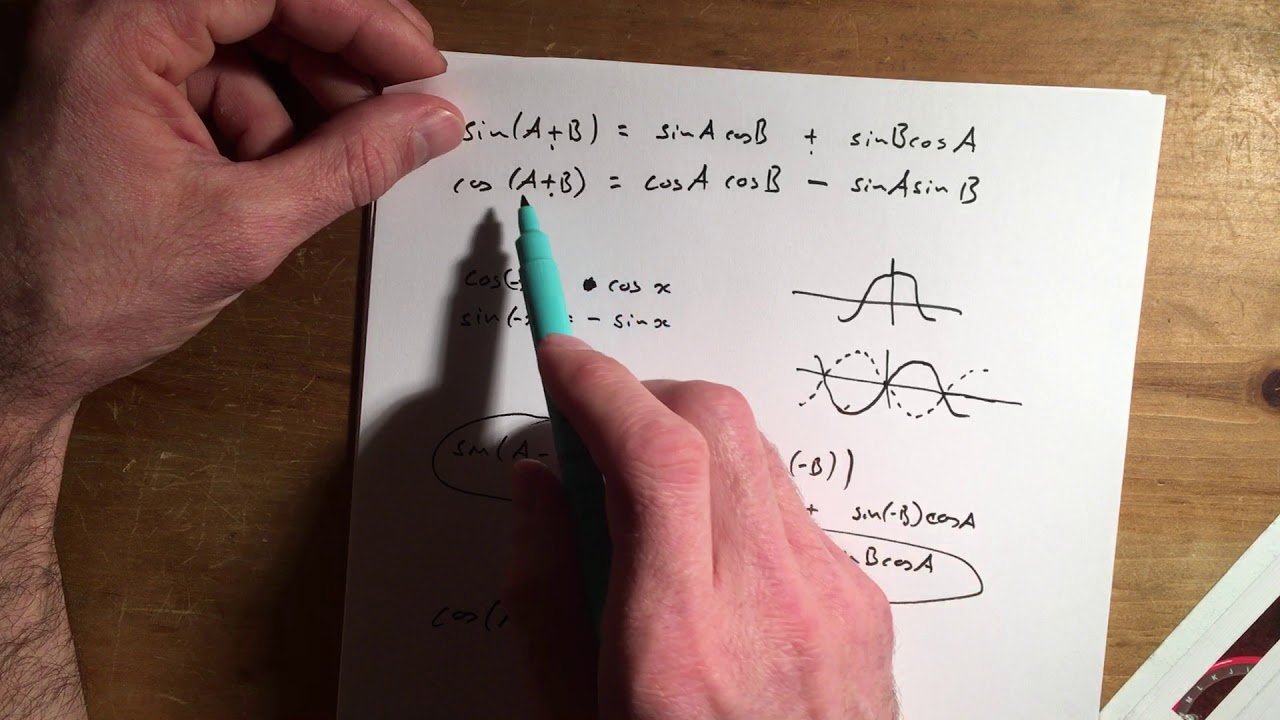 sin(A+B) = sinA cosB + sinBcosA
cos (A+B) = cosA cosB - sinAsinB
cos(- cos x
sin(- = - sinx
sin(A- (-B))
+ sin(-B)cosA
BcosA
cos(